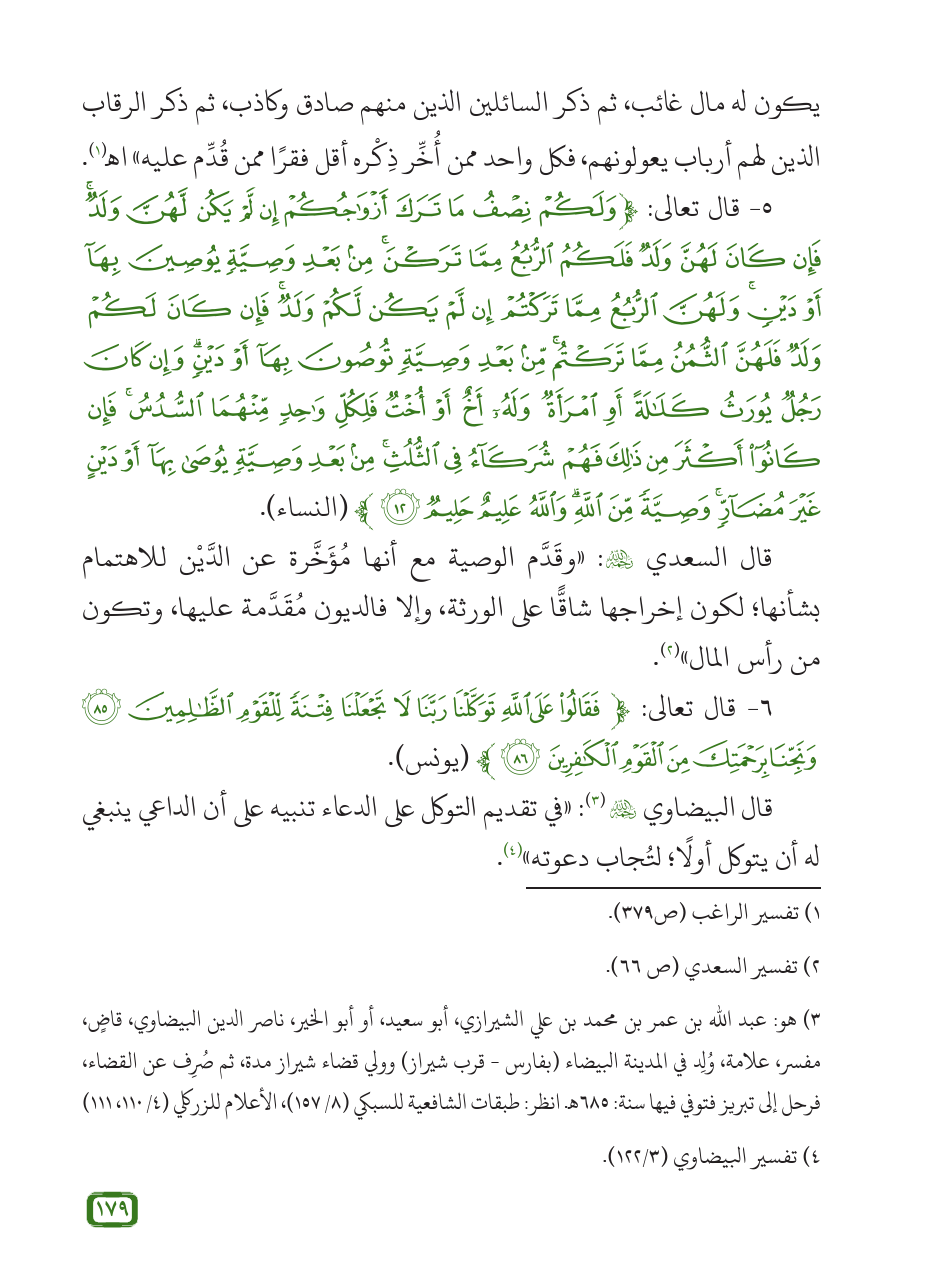 يكون له مال غائب، ثم ذكر السائلين الذين منهم صادق وكاذب، ثم ذكر الرقاب
الذين لهم أرباب يعولونهم، فكل واحد ممن أُخِّر ذِكْره أقل فقرًا ممن قُدِّم عليه» اهـ(١).
٥- قال تعالى: ﴿وَلَكُمۡ نِصۡفُ مَا تَرَكَ أَزۡوَٰجُكُمۡ إِن لَّمۡ يَكُن لَّهُنَّ وَلَدٞۚ
فَإِن كَانَ لَهُنَّ وَلَدٞ فَلَكُمُ ٱلرُّبُعُ مِمَّا تَرَكۡنَۚ مِنۢ بَعۡدِ وَصِيَّةٖ يُوصِينَ بِهَآ
أَوۡ دَيۡنٖۚ وَلَهُنَّ ٱلرُّبُعُ مِمَّا تَرَكۡتُمۡ إِن لَّمۡ يَكُن لَّكُمۡ وَلَدٞۚ فَإِن كَانَ لَكُمۡ
وَلَدٞ فَلَهُنَّ ٱلثُّمُنُ مِمَّا تَرَكۡتُمۚ مِّنۢ بَعۡدِ وَصِيَّةٖ تُوصُونَ بِهَآ أَوۡ دَيۡنٖۗ وَإِن كَانَ
رَجُلٞ يُورَثُ كَلَٰلَةً أَوِ ٱمۡرَأَةٞ وَلَهُۥٓ أَخٌ أَوۡ أُخۡتٞ فَلِكُلِّ وَٰحِدٖ مِّنۡهُمَا ٱلسُّدُسُۚ فَإِن
كَانُوٓاْ أَكۡثَرَ مِن ذَٰلِكَ فَهُمۡ شُرَكَآءُ فِي ٱلثُّلُثِۚ مِنۢ بَعۡدِ وَصِيَّةٖ يُوصَىٰ بِهَآ أَوۡ دَيۡنٍ
غَيۡرَ مُضَآرّٖۚ وَصِيَّةٗ مِّنَ ٱللَّهِۗ وَٱللَّهُ عَلِيمٌ حَلِيمٞ ١٢﴾ (النساء).
قال السعدي رحمه الله: «وقَدَّم الوصية مع أنها مُؤَخَّرة عن الدَّيْن للاهتمام
بشأنها؛ لكون إخراجها شاقًّا على الورثة، وإلا فالديون مُقَدَّمة عليها، وتكون
من رأس المال»(٢).
٦- قال تعالى: ﴿فَقَالُواْ عَلَى ٱللَّهِ تَوَكَّلۡنَا رَبَّنَا لَا تَجۡعَلۡنَا فِتۡنَةٗ لِّلۡقَوۡمِ ٱلظَّٰلِمِينَ ٨٥
وَنَجِّنَا بِرَحۡمَتِكَ مِنَ ٱلۡقَوۡمِ ٱلۡكَٰفِرِينَ ٨٦﴾ (يونس).
قال البيضاوي رحمه الله(٣): «في تقديم التوكل على الدعاء تنبيه على أن الداعي ينبغي
له أن يتوكل أولًا؛ لتُجاب دعوته»(٤).
١) تفسير الراغب (ص٣٧٩).
٢) تفسير السعدي (ص ٦٦).
٣) هو: عبد الله بن عمر بن محمد بن علي الشيرازي، أبو سعيد، أو أبو الخير، ناصر الدين البيضاوي، قاضٍ،
مفسر، علامة، وُلِد في المدينة البيضاء (بفارس - قرب شيراز) وولي قضاء شيراز مدة، ثم صُرِف عن القضاء،
فرحل إلى تبريز فتوفي فيها سنة: ٦٨٥هـ. انظر: طبقات الشافعية للسبكي (٨/ ١٥٧)، الأعلام للزركلي (٤/ ١١٠، ١١١)
٤) تفسير البيضاوي (٣/ ١٢٢).
١٧٩